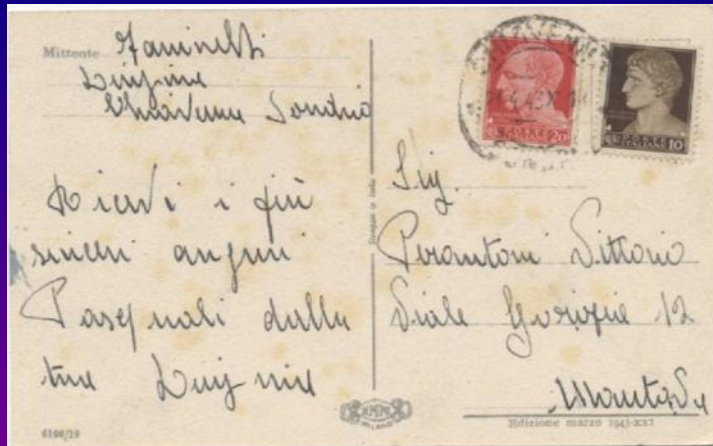 Mittente Zaninelli
Luigina
Chiavenna Sondrio
Ricevi i più
sinceri auguri
Pasquali dalla
tua Luigina
6106/19
Stampato in Italia
POSTE
ITALIANE
20
POSTE
ITALIANE
10
Sig.
Pirantoni Vittorio
Viale Gorizia 12
Mantova
MILANO
Edizione marzo 1943-XXI